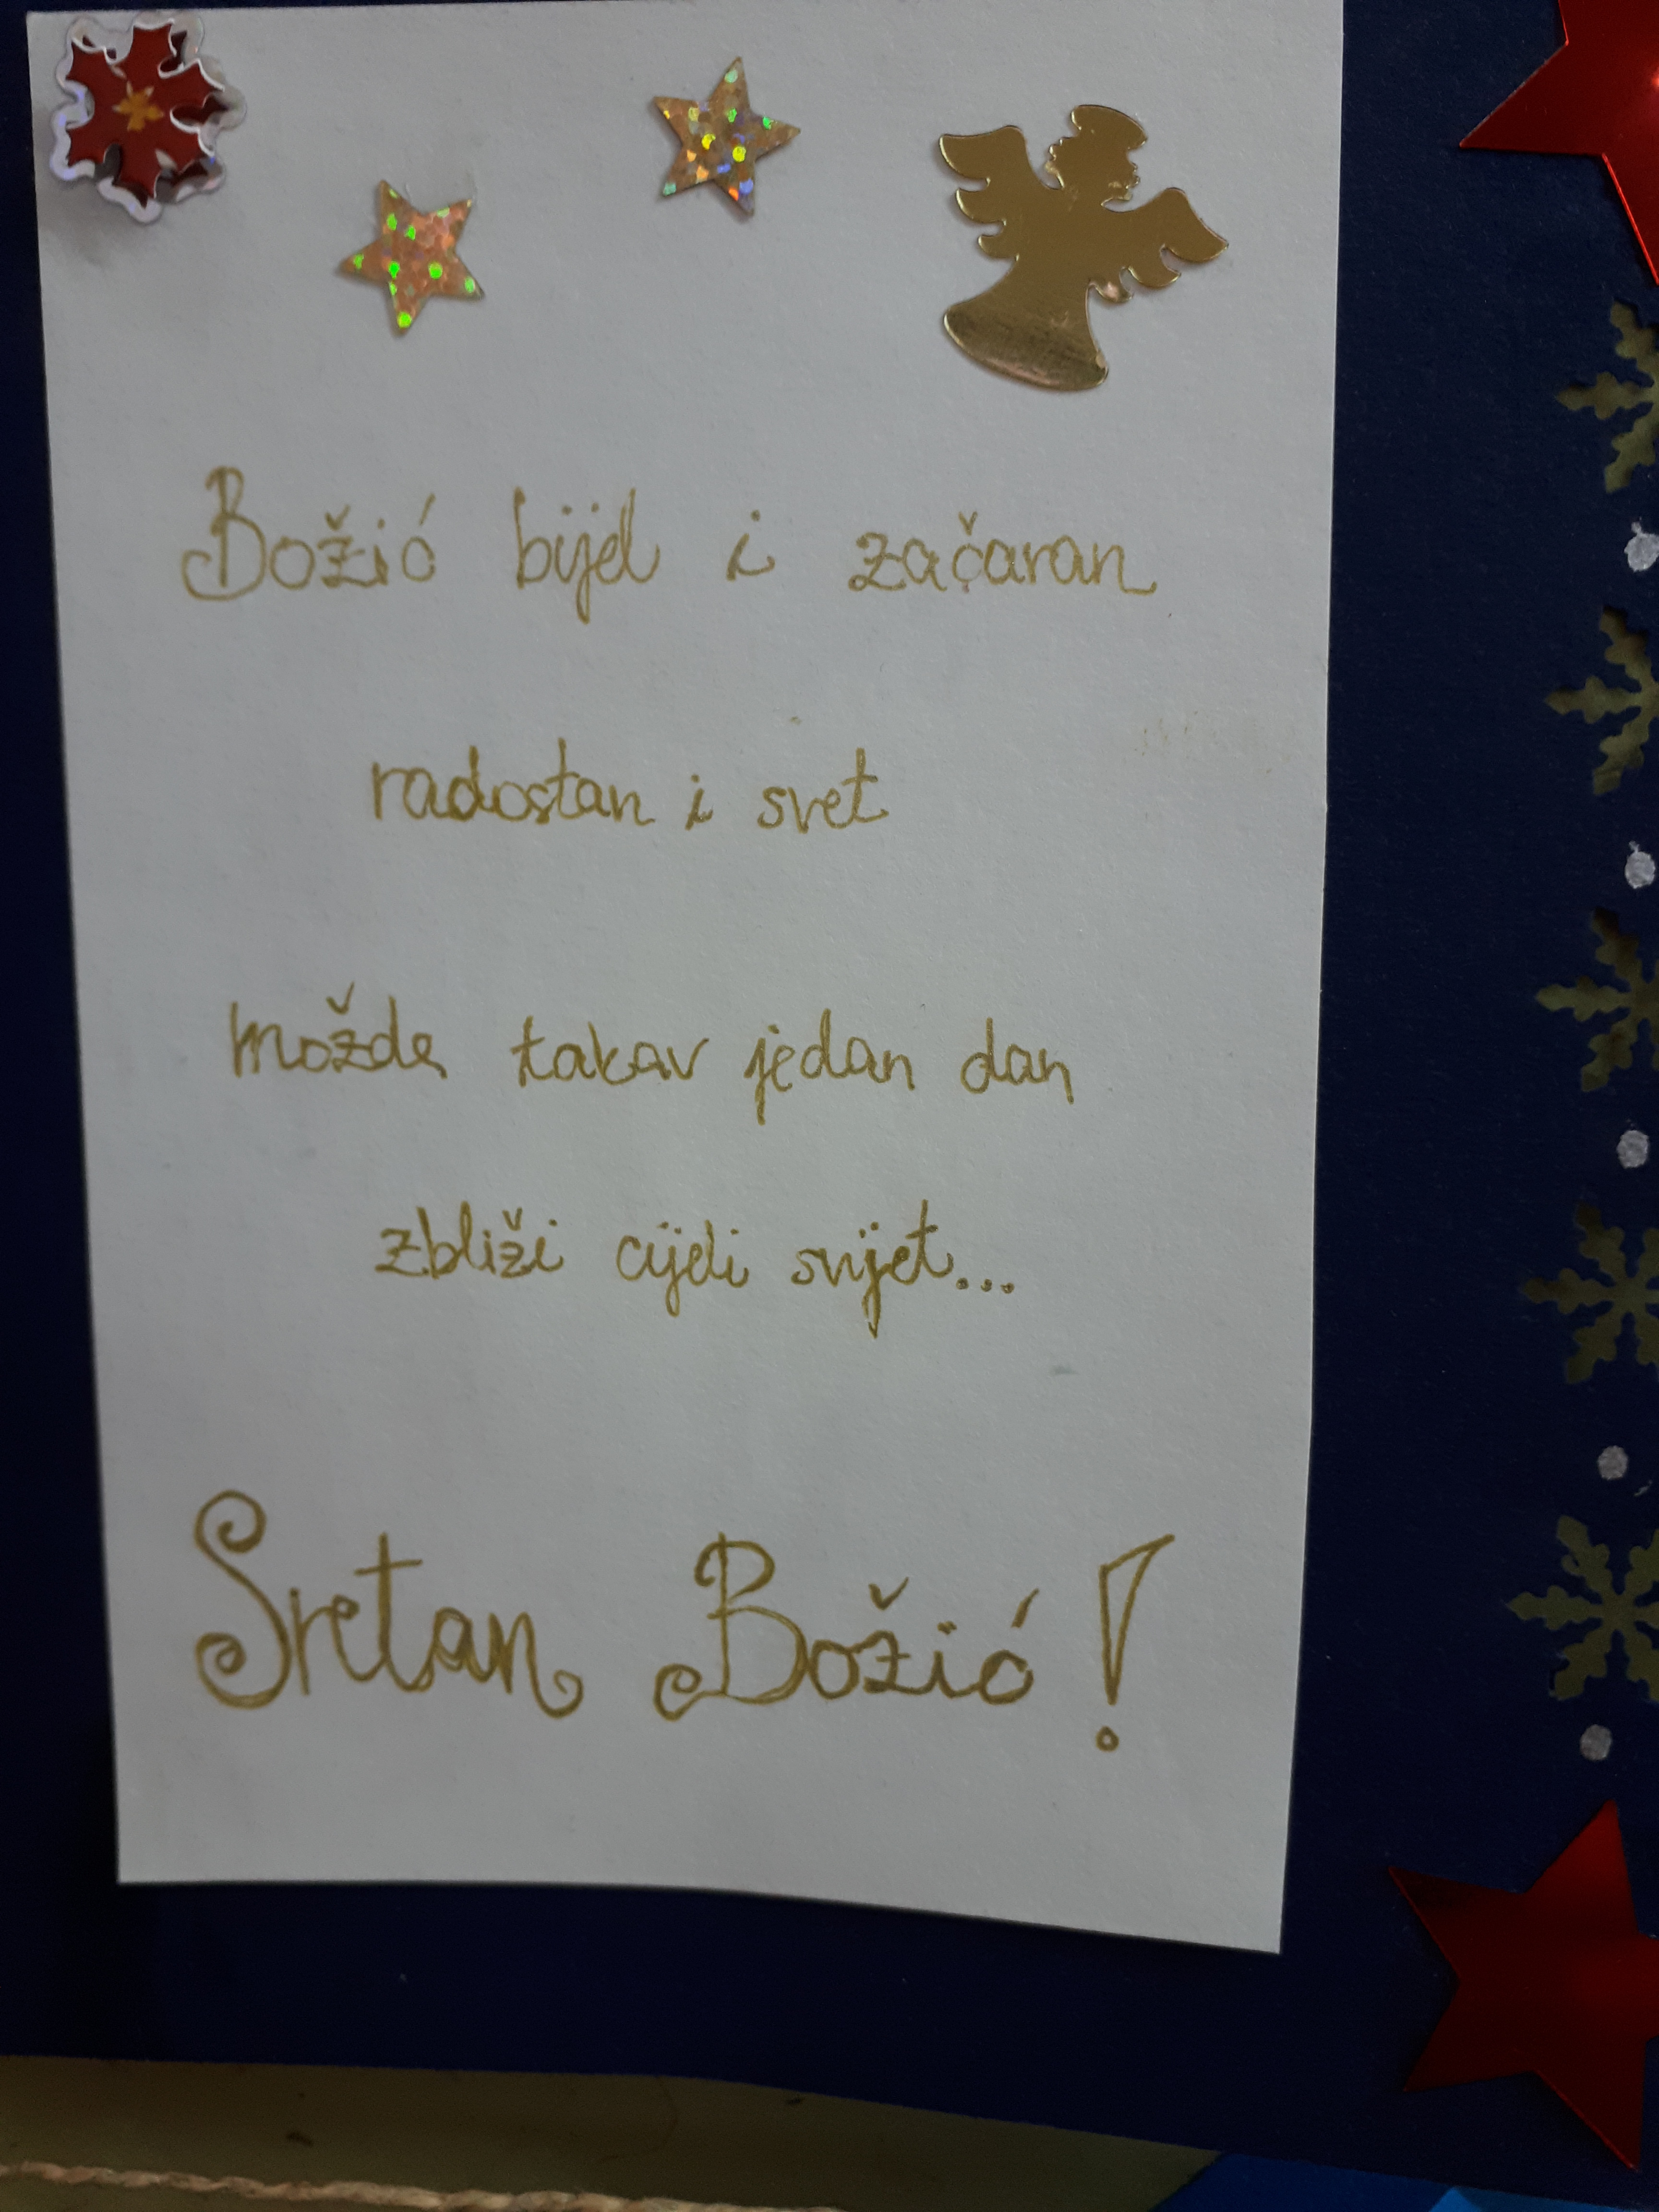 Božić bijel i začaran
radostan i svet
možda takav jedan dan
zbliži cijeli svijet...
Sretan Božić!